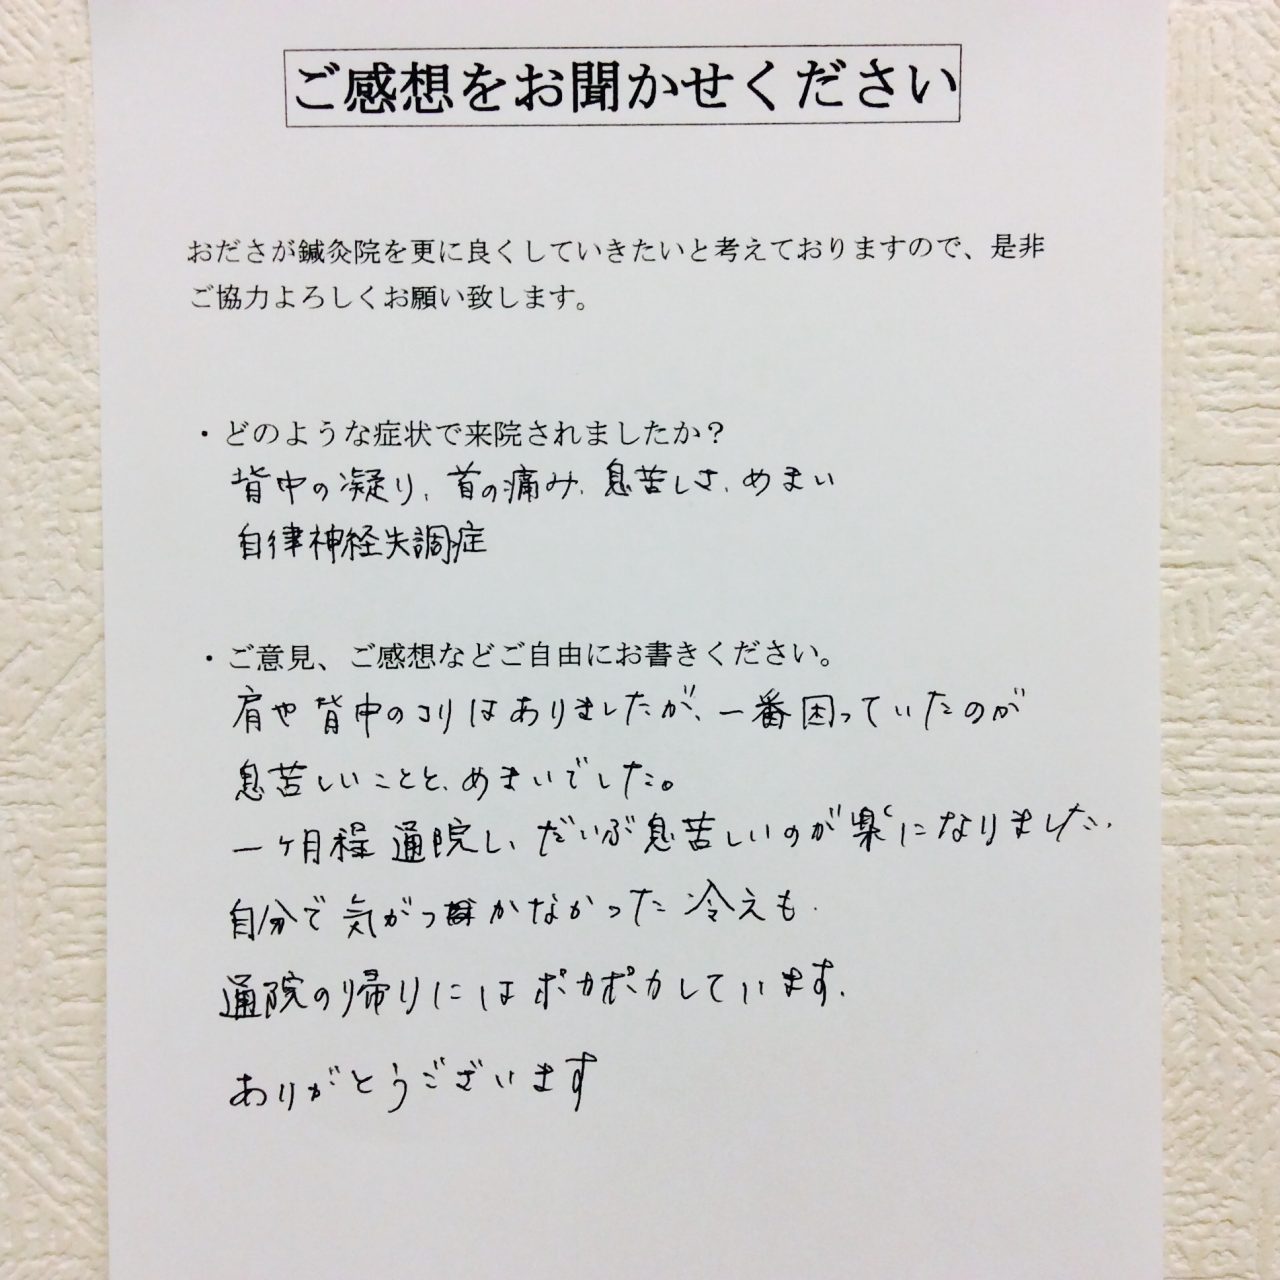 ご感想をお聞かせください
おださが鍼灸院を更に良くしていきたいと考えておりますので、是非
ご協力よろしくお願い致します。
・どのような症状で来院されましたか？
背中の凝り、首の痛み、息苦しさ、めまい
自律神経失調症
・ご意見、ご感想などご自由にお書きください。
肩や背中のコリはありましたが、一番困っていたのが
息苦しいことと、めまいでした。
一ヶ月程通院し、だいぶ息苦しいのが楽になりました。
自分で気がつかなかった冷えも、
通院の帰りにはポカポカしています。
ありがとうございます